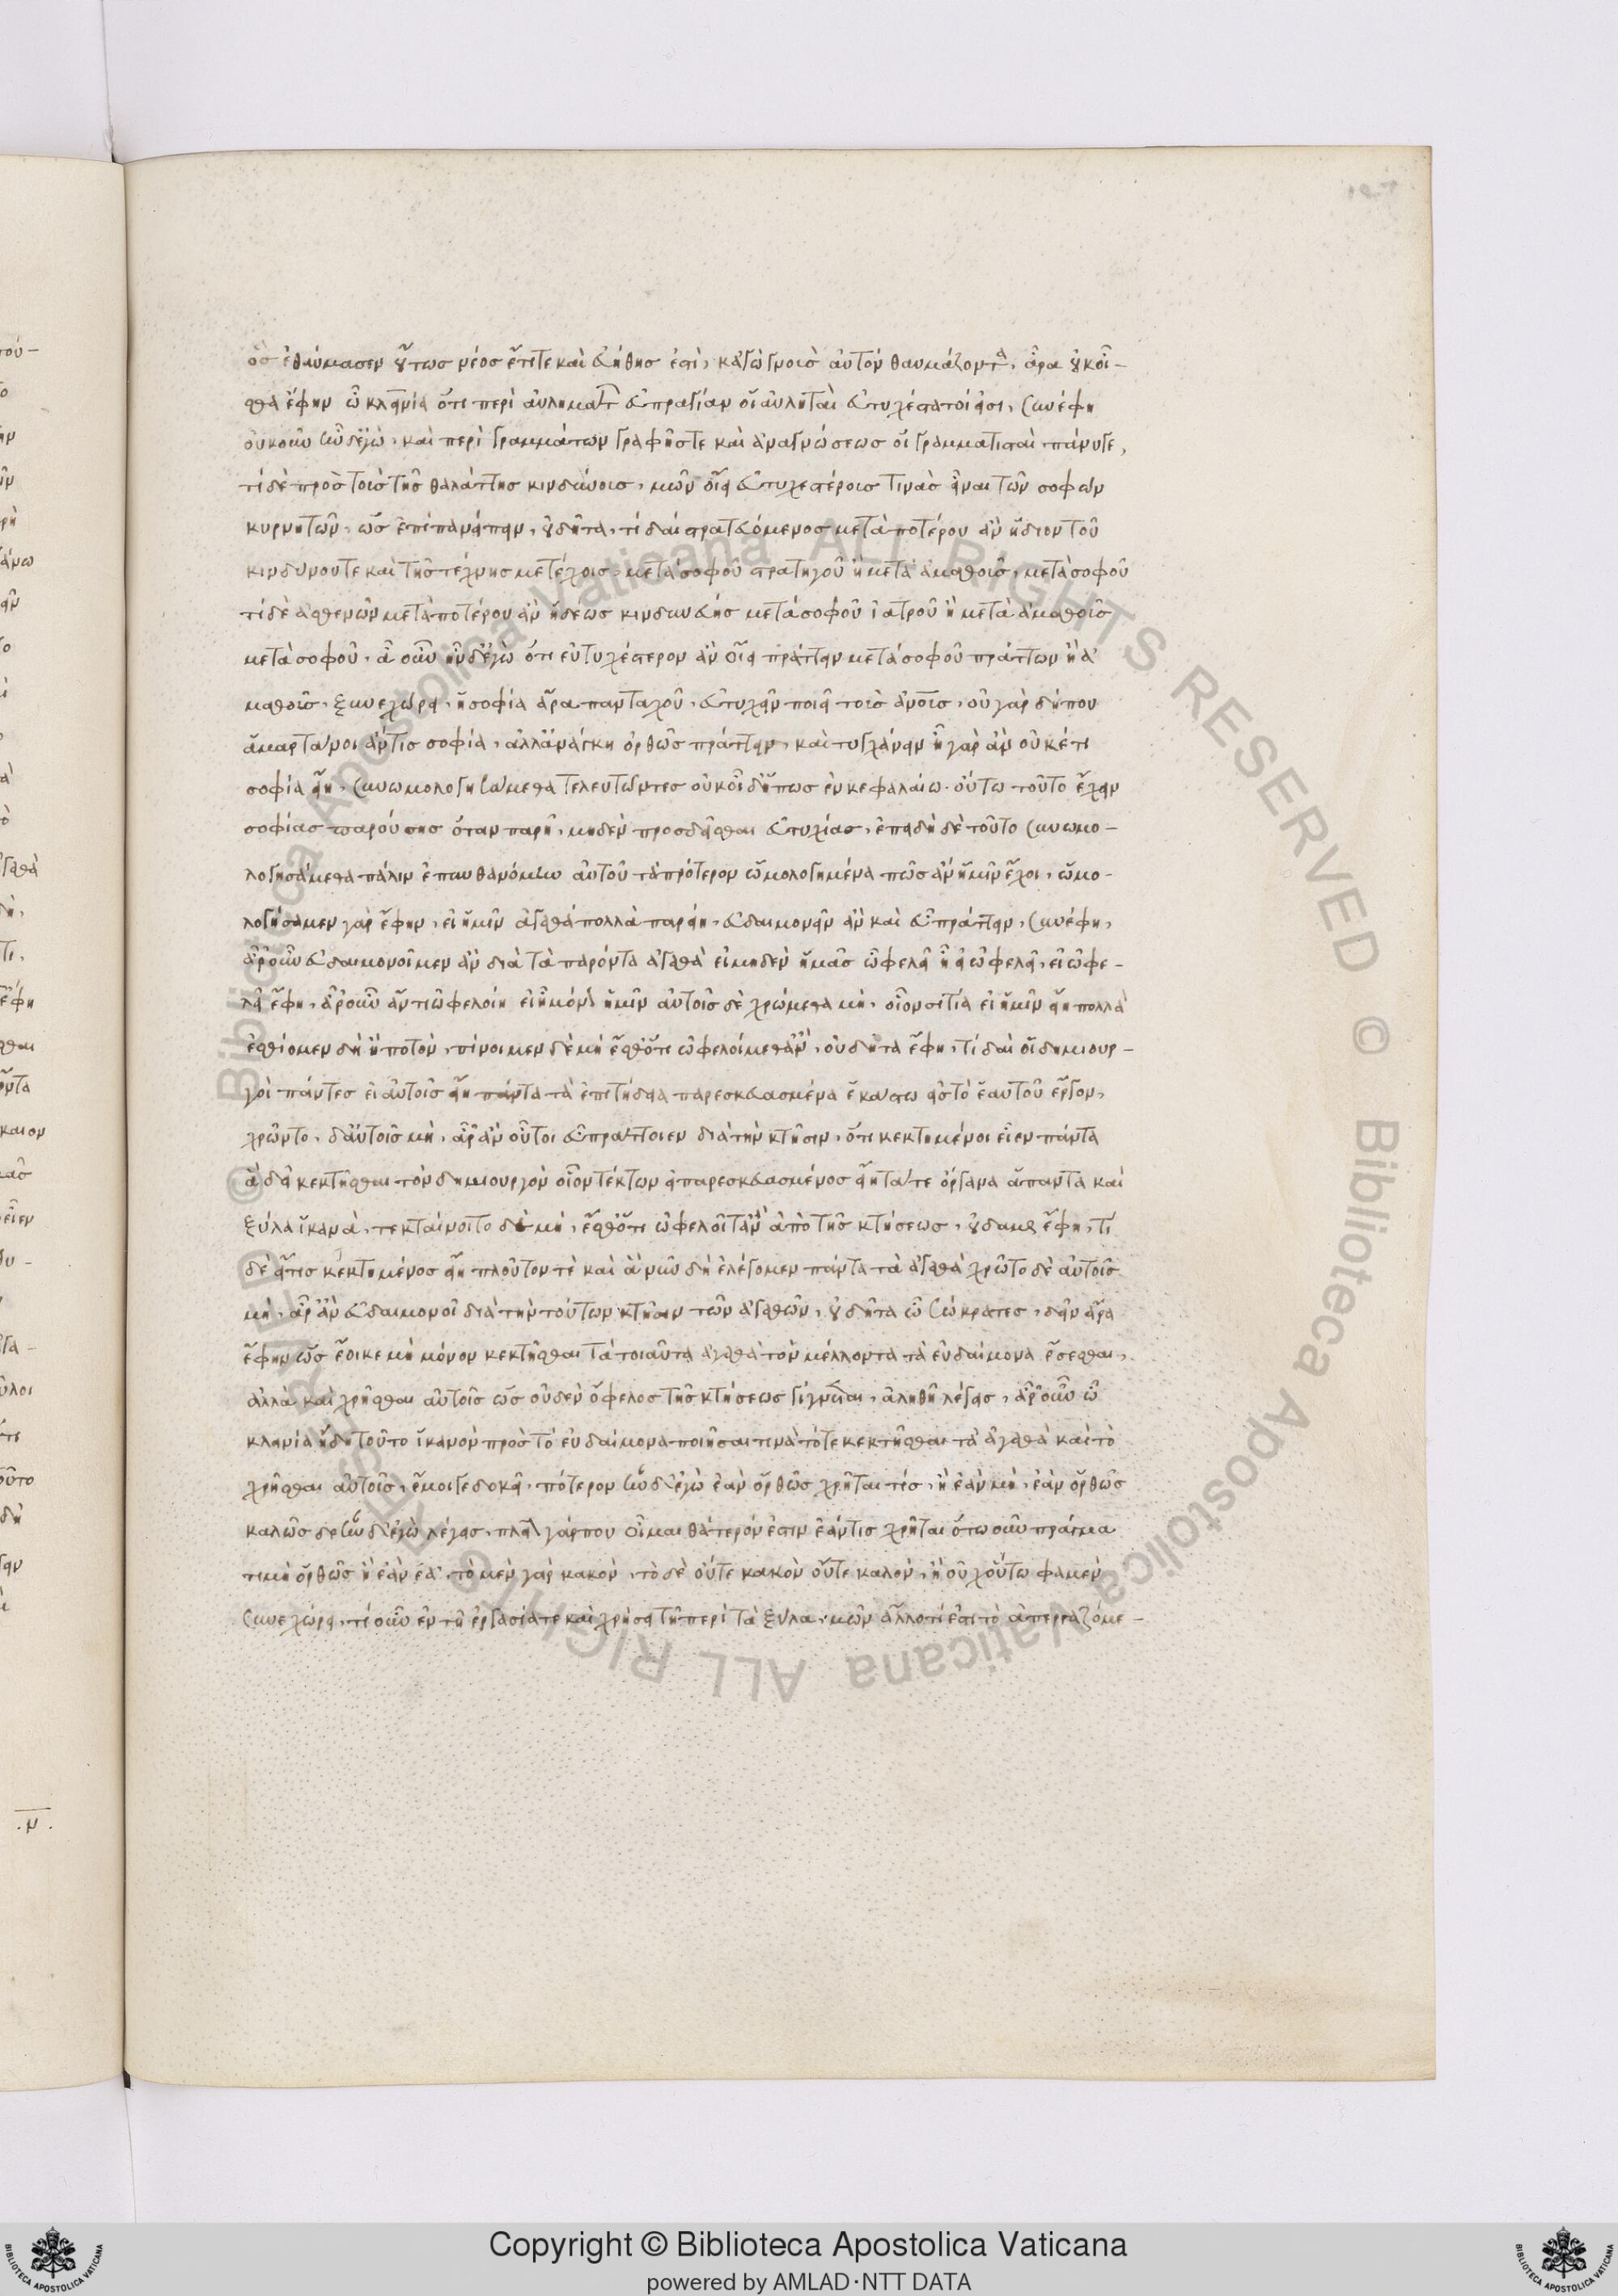 ὃς ἐθαύμασεν οὕτως νέος ἔτι τε καὶ εὐήθης ἐστὶ, κἀγὼ γνοὺς αὐτὸν θαυμάζοντα, ἆρα οὐκ οἶ-
σθα ἔφην ὦ κλεινία ὅτι περὶ αὐλημάτων εὐπραγίαν οἱ αὐληταὶ εὐτυχέστατοί εἰσι, συνέφη
οὐκοῦν ἦν δ' ἐγὼ, καὶ περὶ γραμμάτων γραφῆς τε καὶ ἀναγνώσεως οἱ γραμματισταὶ πάνυ γε,
τί δὲ πρὸς τοὺς τῆς θαλάττης κινδύνους, μῶν οἴει εὐτυχεστέρους τινὰς εἶναι τῶν σοφῶν
κυβερνητῶν, ὡς ἐπίπαν εἰπεῖν, οὐ δῆτα, τί δαὶ στρατευόμενος μετὰ ποτέρου ἂν ἥδιον τοῦ
κινδύνου τε καὶ τῆς τέχνης μετέχοις, μετὰ σοφοῦ στρατηγοῦ ἢ μετὰ ἀμαθοῦς, μετὰ σοφοῦ
τί δὲ ἀσθενῶν μετὰ ποτέρου ἂν ἡδέως κινδυνεύης μετὰ σοφοῦ ἰατροῦ ἢ μετὰ ἀμαθοῦς
μετὰ σοφοῦ, ἆ οὖν ἦν δ' ἐγὼ ὅτι εὐτυχέστερον ἂν οἴει πράττειν μετὰ σοφοῦ πράττων ἢ ἀ
μαθοῦς, ξυνεχώρει, ἡ σοφία ἄρα πανταχοῦ, εὐτυχεῖν ποιεῖ τοὺς ἀνους, οὐ γὰρ δήπου
ἁμαρτάνοι ἄν τις σοφία, ἀλλ' ἀνάγκη ὀρθῶς πράττειν, καὶ τυγχάνειν ἢ γὰρ ἂν οὐκέτι
σοφία εἴη, συνωμολογησάμεθα τελευτῶντες οὐκ οἶδ' ὅπως ἐν κεφαλαίω. οὕτω τοῦτο ἔχειν
σοφίας παρούσης ὅταν παρῆ, μηδὲν προσδεῖσθαι εὐτυχίας, ἐπειδὴ δὲ τοῦτο συνωμο-
λογησάμεθα πάλιν ἐπυνθανόμην αὐτοῦ τὰ πρότερον ὡμολογημένα πῶς ἂν ἡμῖν ἔχοι, ὡμο-
λογήσαμεν γὰρ ἔφην, εἰ ἡμῖν ἀγαθὰ πολλὰ παρείη, εὐδαιμονεῖν ἂν καὶ εὖ πράττειν, συνέφη,
ἆρ' οὖν εὐδαιμονοῖμεν ἂν διὰ τὰ παρόντα ἀγαθὰ εἰ μηδὲν ἡμᾶς ὠφελεῖ ἢ εἰ ὠφελεῖ, εἰ ὠφε-
λεῖ ἔφη, ἆρ' οὖν ἄν τι ὠφελοίη εἰ εἴη μόνον ἡμῖν αὐτοῖς δὲ χρώμεθα μὴ, οἷον σιτία εἰ ἡμῖν εἴη πολλὰ
ἐσθίομεν δὴ ἢ ποτὸν, πίνοιμεν δὲ μὴ ἔσθ' ὅτι ὠφελοίμεθ' ἂν, οὐ δῆτα ἔφη, τί δαὶ οἱ δημιουρ-
γοὶ πάντες εἰ αὐτοῖς εἴη πάντα τὰ ἐπιτήδεια παρεσκευασμένα ἑκάστω εἰς τὸ ἑαυτοῦ ἔργον,
χρῷντο, δ' αὐτοῖς μὴ, ἆρ' ἂν οὗτοι εὖ πράττοιεν διὰ τὴν κτῆσιν, ὅτι κεκτημένοι εἶεν πάντα
ἃ δεῖ κεκτῆσθαι τὸν δημιουργὸν οἷον τέκτων εἰ παρεσκευασμένος εἴη τά τε ὄργανα ἅπαντα καὶ
ξύλα ἱκανὰ, τεκταίνοιτο δὲ μὴ, ἔσθ' ὅτι ὠφελοῖτ' ἂν ἀπὸ τῆς κτήσεως, οὐδαμῶς ἔφη, τί
δὲ εἴ τις κεκτημένος εἴη πλοῦτόν τε καὶ ἃ νῦν δὴ ἐλέγομεν πάντα τὰ ἀγαθὰ χρῷτο δὲ αὐτοῖς
μὴ, ἆρ' ἂν εὐδαιμονοῖ διὰ τὴν τούτων κτῆσιν τῶν ἀγαθῶν, οὐ δῆτα ὦ Σώκρατες, δεῖν ἄρα
ἔφην ὡς ἔοικε μὴ μόνον κεκτῆσθαι τὰ τοιαῦτα ἀγαθὰ τὸν μέλλοντα τὰ εὐδαίμονα ἔσεσθαι,
ἀλλὰ καὶ χρῆσθαι αὐτοῖς ὡς οὐδὲν ὄφελος τῆς κτήσεως γίγνεται, ἀληθῆ λέγεις, ἆρ' οὖν ὦ
κλεινία ἤδη τοῦτο ἱκανὸν πρὸς τὸ εὐδαίμονα ποιῆσαι τινὰ τό τε κεκτῆσθαι τὰ ἀγαθὰ καὶ τὸ
χρῆσθαι αὐτοῖς, ἔμοιγε δοκεῖ, πότερον ἦν δ' ἐγὼ ἐὰν ὀρθῶς χρῆται τις, ἢ ἐὰν μὴ, ἐὰν ὀρθῶς
καλῶς δὲ ἦν δ' ἐγὼ λέγεις, πλεῖον γάρ που οἶμαι θάτερόν ἐστιν ἐάν τις χρῆται ὅτω οὖν πράγμα
τι μὴ ὀρθῶς ἢ ἐὰν ἐᾶ, τὸ μὲν γὰρ κακὸν, τὸ δὲ οὔτε κακὸν οὔτε καλὸν, ἢ οὐχ οὕτω φαμὲν
συνεχώρει, τί οὖν ἐν τῆ ἐργασία τε καὶ χρήσει τῆ περὶ τὰ ξύλα, μῶν ἄλλο τί ἐστι τὸ ἀπεργαζόμε-
Copyright © Biblioteca Apostolica Vaticana
powered by AMLAD·NTT DATA